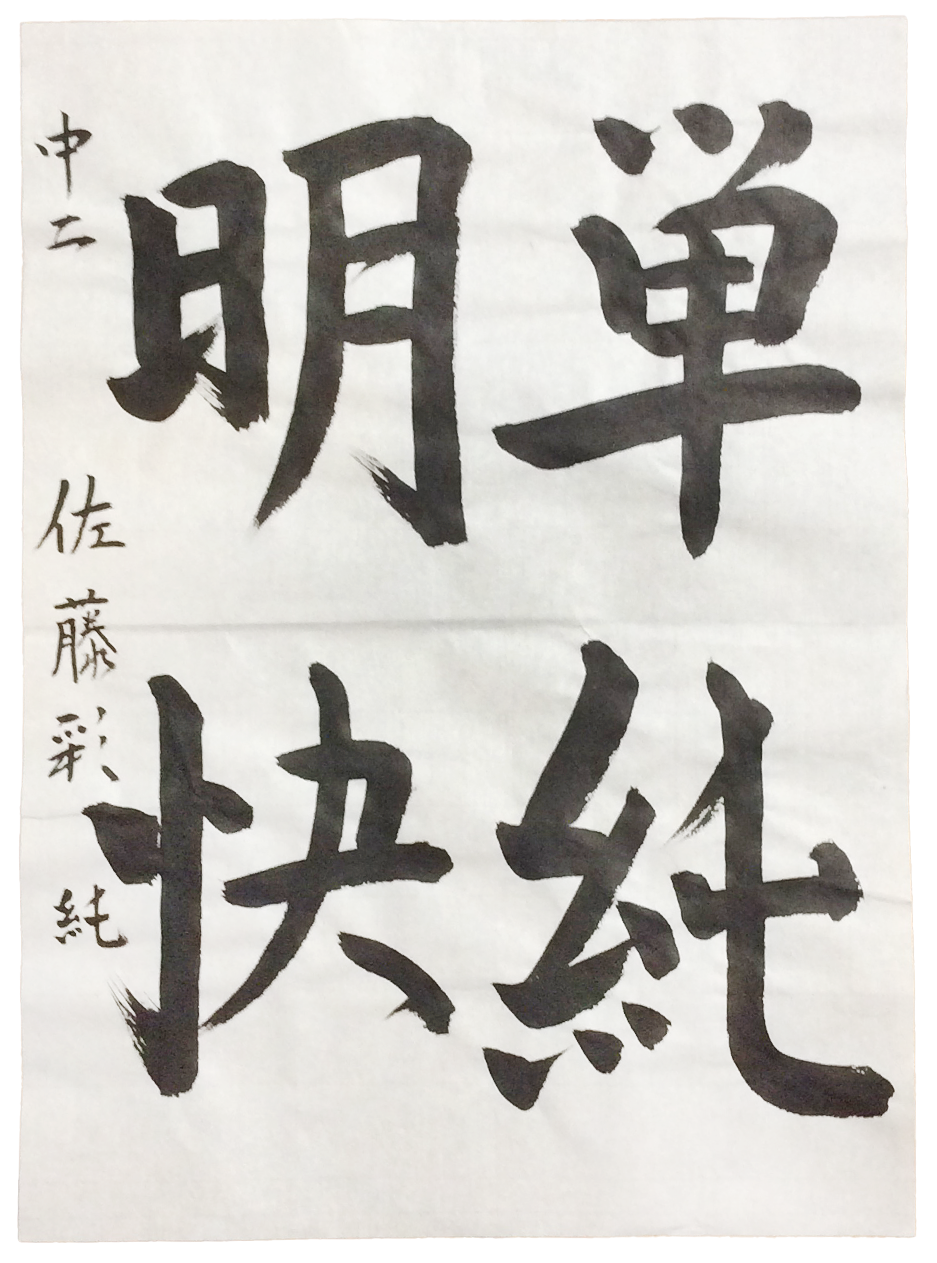 単純
明快
中二 佐藤彩純